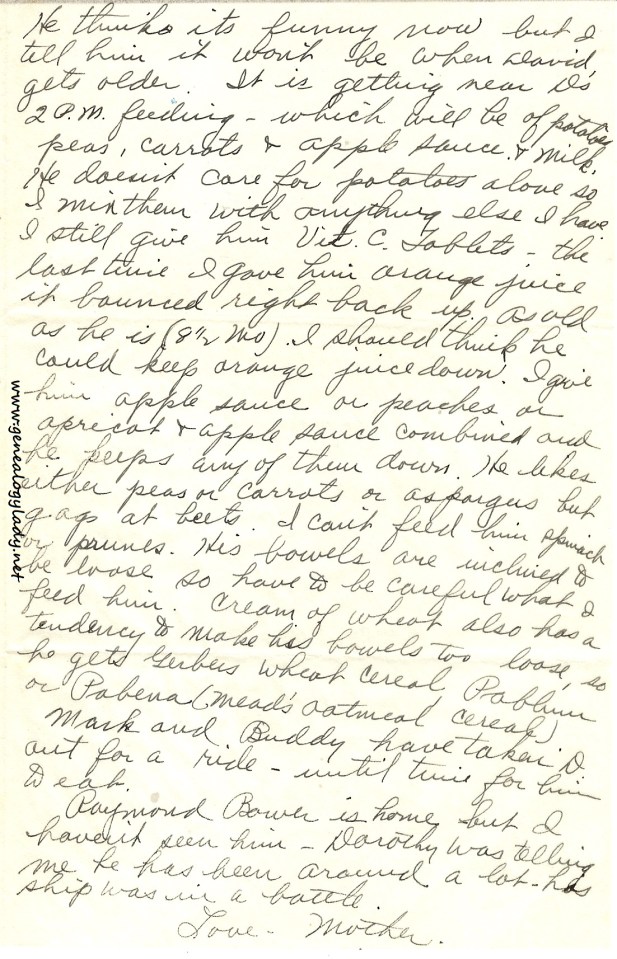 He thinks its funny now but I
tell him it won't be when David
gets older. It is getting near D's
2 P.M. feeding - which will be of potatoes
peas, carrots & apple sauce & milk.
He doesn't care for potatoes alone so
I mix them with anything else I have
I still give him Vit. C. Tablets - the
last time I gave him orange juice
it bounced right back up. As old
as he is (8½ Mo). I should think he
could keep orange juice down. I give
him apple sauce or peaches or
apricot & apple sauce combined and
he keeps any of them down. He likes
either peas or carrots or aspargus but
gags at beets. I can't feed him spinach
or prunes. His bowels are inclined to
be loose so have to be careful what I
feed him. Cream of wheat also has a
tendency to make his bowels too loose, so
he gets Gerbers wheat cereal, Pablum
or Pabena (mead's oatmeal cereal)
Mark and Buddy have taken D
out for a ride - until time for him
to eat.
Raymond Bower is home, but I
haven't seen him - Dorothy was telling
me he has been around a lot - his
ship was in a battle.
Love - Mother.
www.genealogylady.net